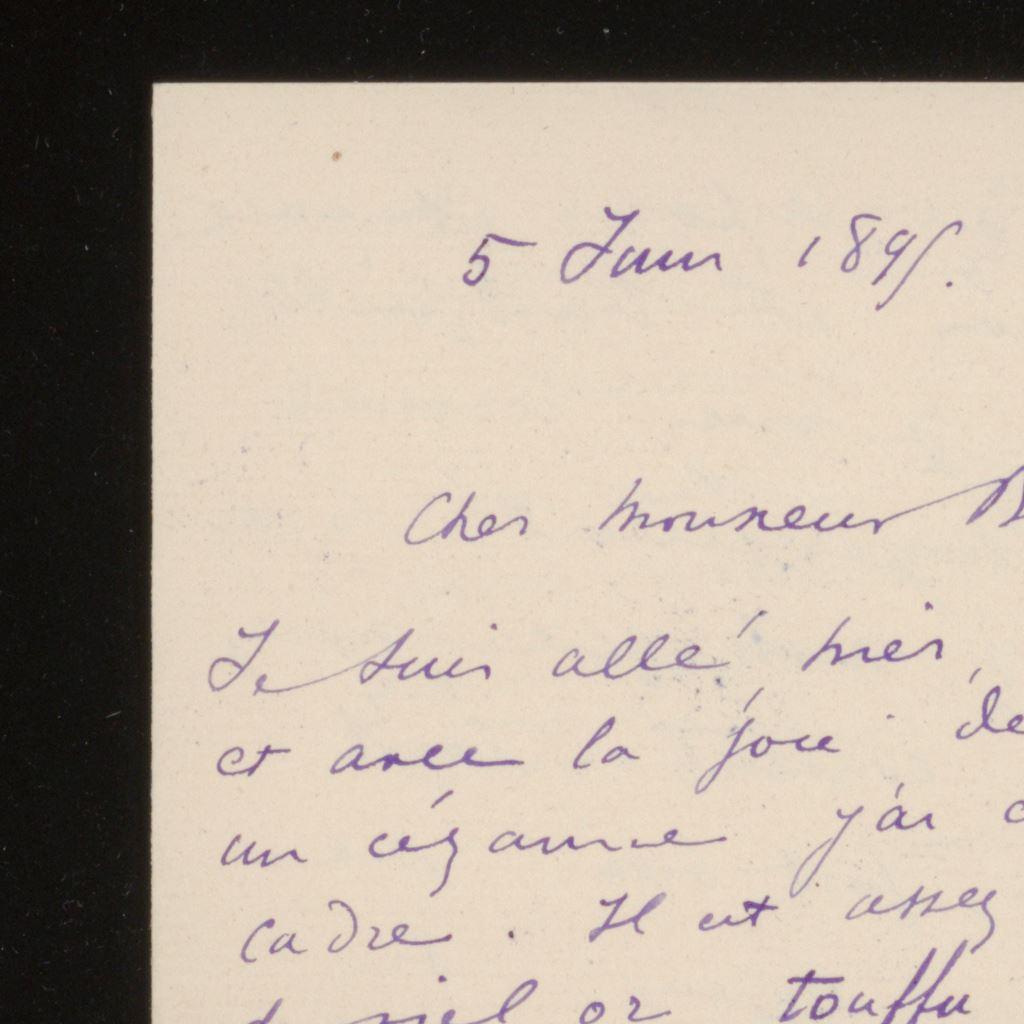 5 Juin 1895.
Cher monsieur B
Je suis allé hier,
et avec la joie de
un cézanne j'ai
cadre. Il est assez
or touffu